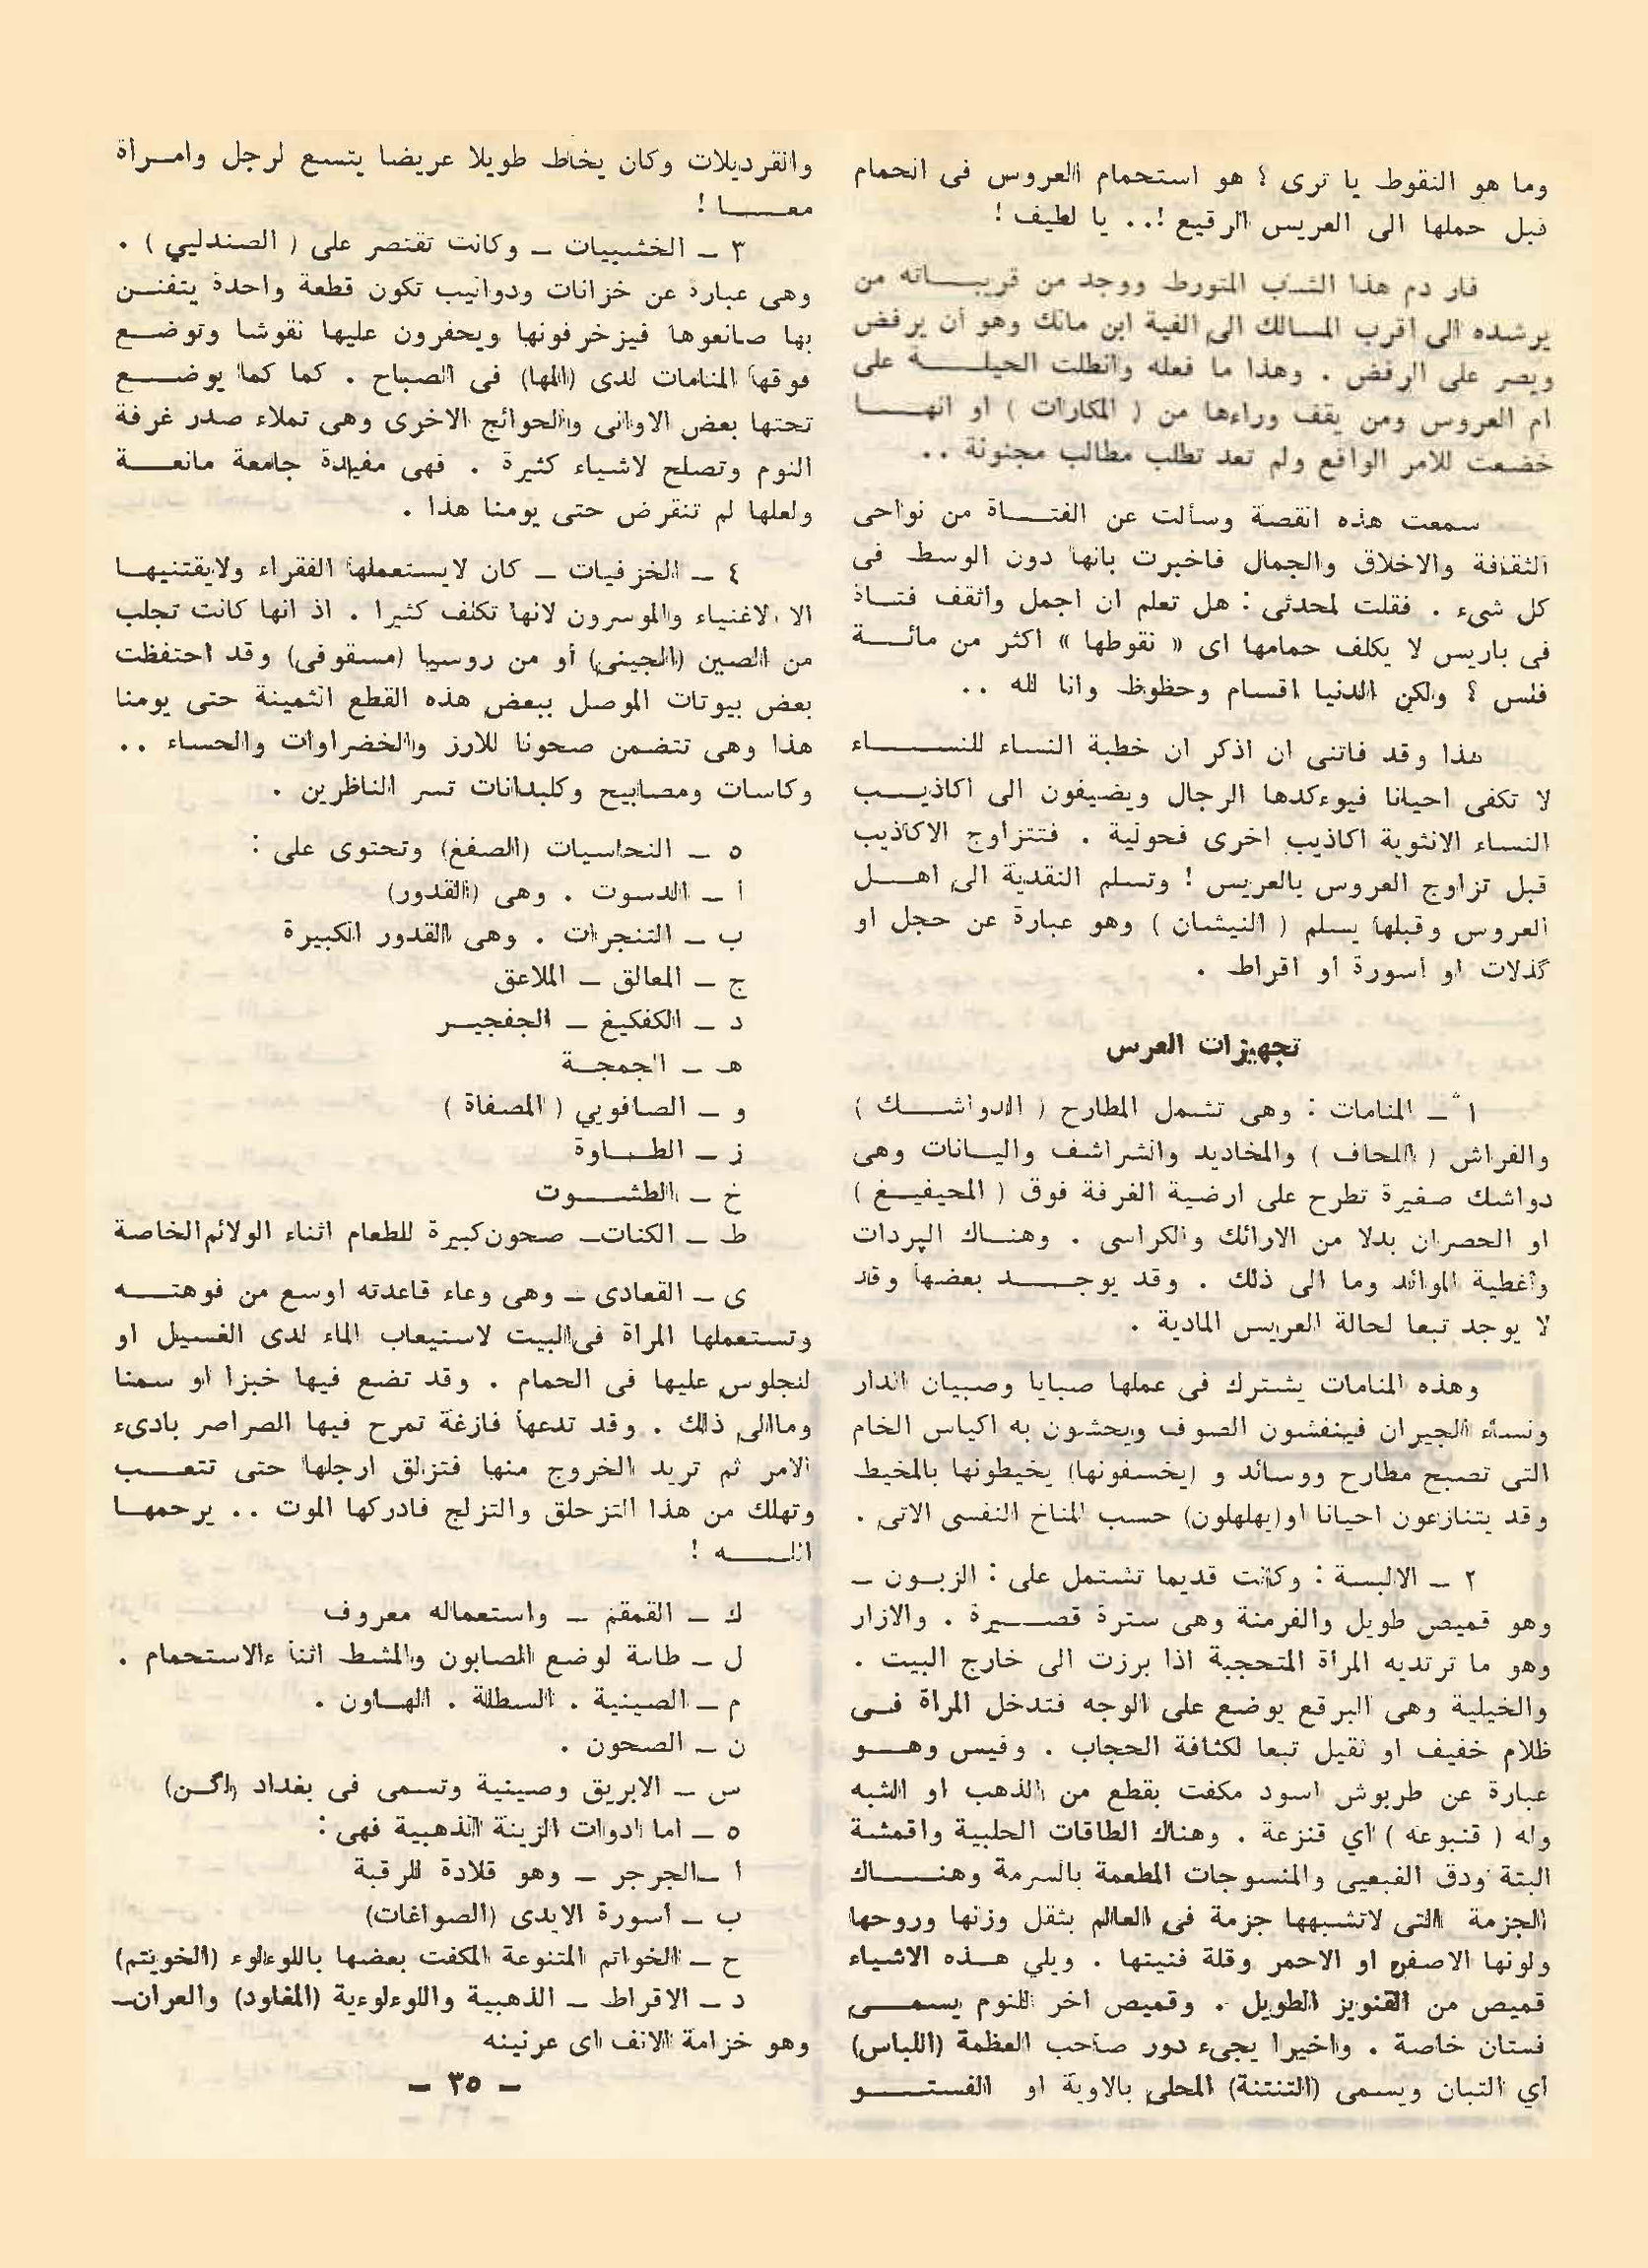 وما هو النقوط يا ترى ؟ هو استحمام العروس فى الحمام
قبل حملها الى العريس الرقيع !.. يا لطيف !
فار دم هذا الشاب المتورط ووجد من قريباته من
يرشده الى اقرب المسالك الى الفية ابن مالك وهو أن يرفض
ويصر على الرفض . وهذا ما فعله وانطلت الحيلة على
ام العروس ومن يقف وراءها من ( المكارات ) او انها
خضعت للامر الواقع ولم تعد تطلب مطالب مجنونة ..
سمعت هذه القصة وسألت عن الفتاة من نواحى
الثقافة والاخلاق والجمال فاخبرت بانها دون الوسط فى
كل شىء . فقلت لمحدثى : هل تعلم ان اجمل واثقف فتاة
فى باريس لا يكلف حمامها اى « نقوطها » اكثر من مائة
فلس ؟ ولكن الدنيا اقسام وحظوظ وانا لله ..
هذا وقد فاتنى ان اذكر ان خطبة النساء للنساء
لا تكفى احيانا فيوءكدها الرجال ويضيفون الى اكاذيب
النساء الانثوية اكاذيب اخرى فحولية . فتتزاوج الاكاذيب
قبل تزاوج العروس بالعريس ! وتسلم النقدية الى اهل
العروس وقبلها يسلم ( النيشان ) وهو عبارة عن حجل او
گذلات او أسورة أو اقراط .
تجهيزات العرس
١ ً ـ المنامات : وهى تشمل المطارح ( الدواشك )
والفراش ( اللحاف ) والمخاديد والشراشف واليانات وهى
دواشك صغيرة تطرح على ارضية الغرفة فوق ( المحيفيغ )
او الحصران بدلا من الارائك والكراسى . وهناك البردات
وأغطية الموائد وما الى ذلك . وقد يوجد بعضها وقد
لا يوجد تبعا لحالة العريس المادية .
وهذه المنامات يشترك فى عملها صبايا وصبيان الدار
ونساء الجيران فينفشون الصوف ويحشون به اكياس الخام
التى تصبح مطارح ووسائد و (يخسفونها) يخيطونها بالمخيط
وقد يتنازعون احيانا او(يهلهلون) حسب المناخ النفسى الاتى .
٢ ـ الالبسة : وكانت قديما تشتمل على : الزبون ـ
وهو قميص طويل والفرمنة وهى سترة قصيرة . والازار
وهو ما ترتديه المرأة المتحجبة اذا برزت الى خارج البيت .
والخيلية وهى البرقع يوضع على الوجه فتدخل المرأة فى
ظلام خفيف او ثقيل تبعا لكثافة الحجاب . وفيس وهو
عبارة عن طربوش اسود مكفت بقطع من الذهب او الشبه
وله ( قنبوعه ) اي قنزعة . وهناك الطاقات الحلبية واقمشة
البتة ودق الفبعيى والمنسوجات المطعمة بالسرمة وهناك
الجزمة التى لاتشبهها جزمة فى العالم بثقل وزنها وروحها
ولونها الاصفر او الاحمر وقلة فنيتها . ويلي هذه الاشياء
قميص من القنويز الطويل . وقميص اخر للنوم يسمى
فستان خاصة . واخيرا يجىء دور صاحب العظمة (اللباس)
اي التبان ويسمى (التنتنة) المحلى بالاوية او الفستو
والقرديلات وكان يخاط طويلا عريضا يتسع لرجل وامرأة
معا !
٣ ـ الخشبيات ـ وكانت تقتصر على ( الصندليي ) .
وهى عبارة عن خزانات ودواليب تكون قطعة واحدة يتفنن
بها صانعوها فيزخرفونها ويحفرون عليها نقوشا وتوضع
فوقها المنامات لدى (الملها) فى الصباح . كما كما يوضع
تحتها بعض الاوانى والحوائج الاخرى وهى تملاء صدر غرفة
النوم وتصلح لاشياء كثيرة . فهى مفيدة جامعة مانعة
ولعلها لم تنقرض حتى يومنا هذا .
٤ ـ الخزفيات ـ كان لايستعملها الفقراء ولايقتنيها
الا الاغنياء والموسرون لانها تكلف كثيرا . اذ انها كانت تجلب
من الصين (الچينى) أو من روسيا (مسقوفى) وقد احتفظت
بعض بيوتات الموصل ببعض هذه القطع الثمينة حتى يومنا
هذا وهى تتضمن صحونا للارز والخضراوات والحساء ..
وكاسات ومصابيح وكلبدانات تسر الناظرين .
٥ ـ النحاسيات (الصفغ) وتحتوى على :
أ ـ الدسوت . وهى (القدور)
ب ـ التنجرات . وهى القدور الكبيرة
ج ـ المعالق ـ الملاعق
د ـ الكفكيغ ـ الجفجير
هـ ـ الجمجة
و ـ الصافويي ( المصفاة )
ز ـ الطاوة
خ ـ الطشوت
ط ـ الكنات ـ صحون كبيرة للطعام اثناء الولائم الخاصة
ى ـ القعادى ـ وهى وعاء قاعدته اوسع من فوهته
وتستعملها المرأة فى البيت لاستيعاب الماء لدى الغسيل او
للجلوس عليها فى الحمام . وقد تضع فيها خبزا او سمنا
وماالى ذلك . وقد تدعها فازغة تمرح فيها الصراصر بادىء
الامر ثم تريد الخروج منها فتزالق ارجلها حتى تتعب
وتهلك من هذا التزحلق والتزلج فادركها الموت .. يرحمها
الله !
ك ـ القمقم ـ واستعماله معروف
ل ـ طاسة لوضع الصابون والمشط اثنا ءالاستحمام .
م ـ الصينية . السطلة . الهاون .
ن ـ الصحون .
س ـ الابريق وصينية وتسمى فى بغداد (لگن)
٥ ـ اما ادوات الزينة الذهبية فهى :
أ ـ الجرجر ـ وهو قلادة للرقبة
ب ـ أسورة الايدى (الصواغات)
ح ـ الخواتم المتنوعة المكفت بعضها باللوءلوء (الخويتم)
د ـ الاقراط ـ الذهبية واللوءلوءية (المغاود) والعران ـ
وهو خزامة الانف اى عرنينه
ـ ٣٥ ـ